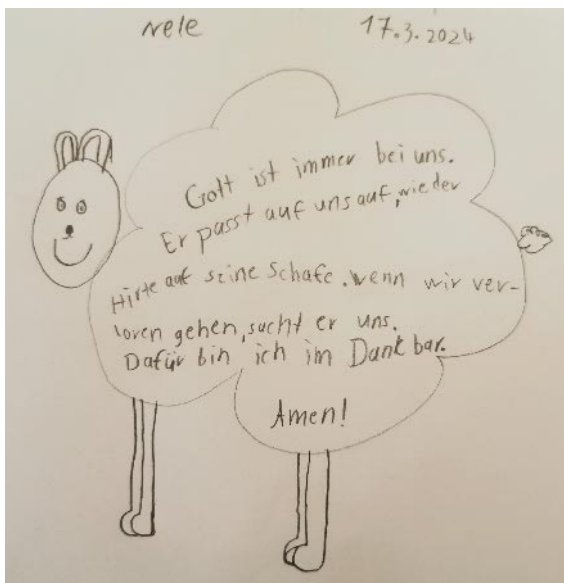 Nele 17.3.2024
Gott ist immer bei uns.
Er passt auf uns auf, wie der
Hirte auf seine Schafe. wenn wir ver-
loren gehen, sucht er uns.
Dafür bin ich im Dankbar.
Amen!